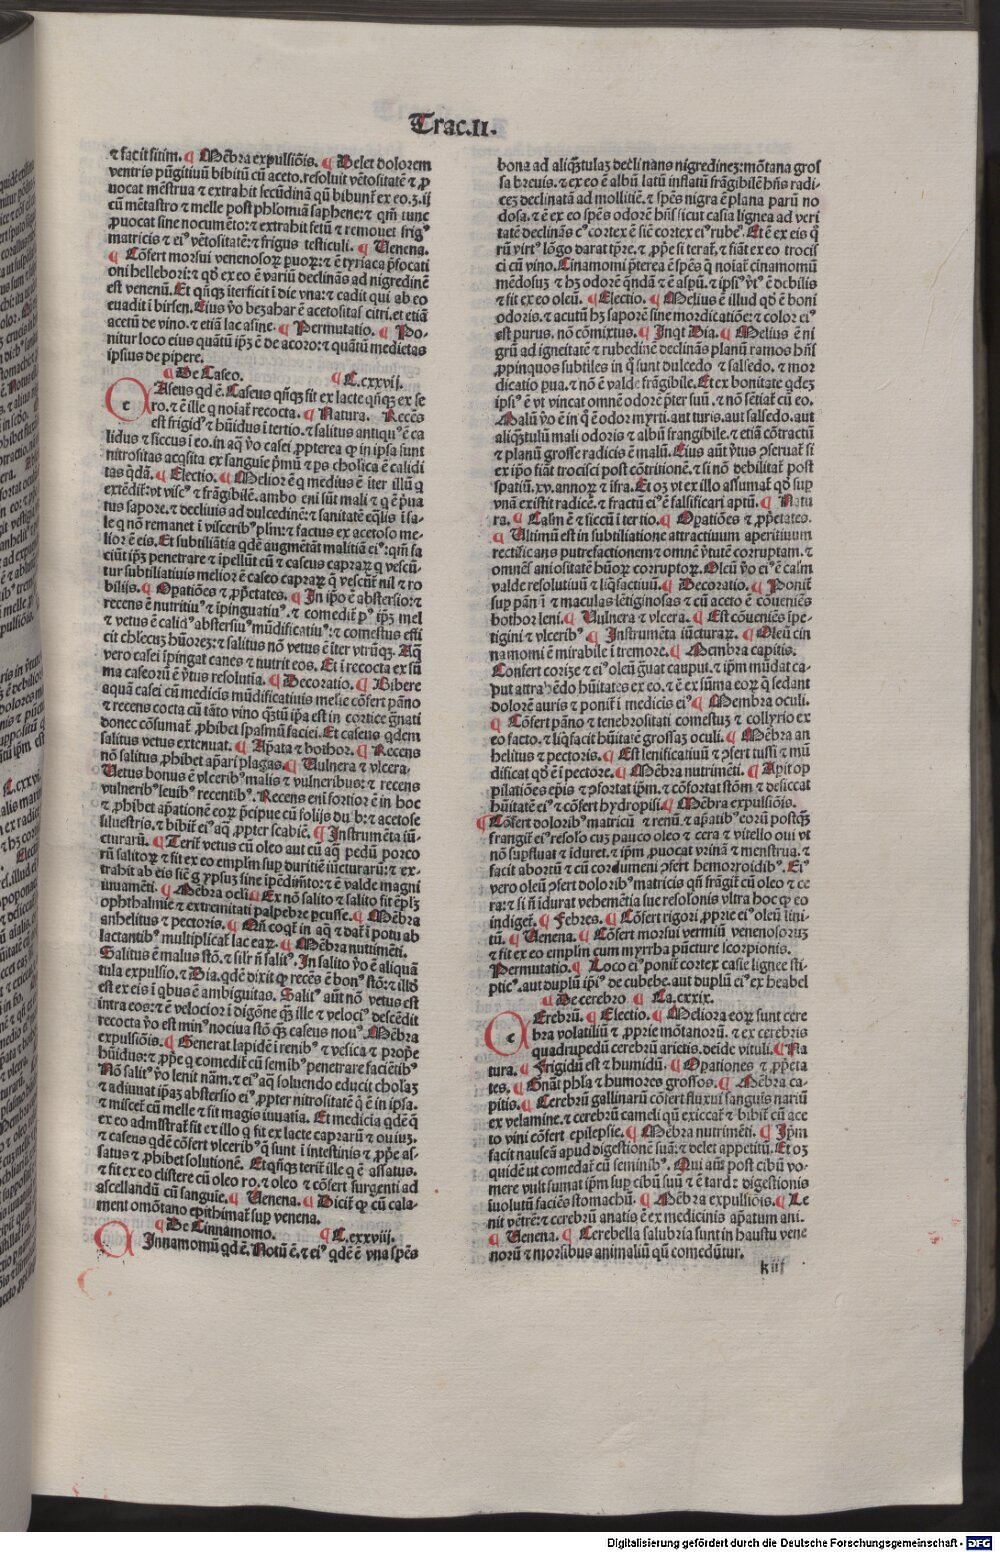 Trac.II.
⁊ facit sitim. ¶ Mēbra expulsiōis. ¶ Delet dolorem
ventris pūgitiuū bibitū cū aceto. resoluit vētositatē ⁊ ꝓ
uocat mēstrua ⁊ extrahit secūdinā qū bibunt᷑ ex eo.ʒ.ij
cū mētastro ⁊ melle post phlomuā saphene: ⁊ qm̄ iunc
ꝓuocat sine nocumēto: ⁊ extrahit fetū ⁊ remouet frigꝰ
matricis ⁊ eiꝰ vētositatē: ⁊ frigus testiculi. ¶ Venena.
¶ Cōfert morsui venenosoꝝ
oni hellebori: ⁊ qd̄ ex eo ē variū declinās ad nigredinē
est venenū. Et qn̄qꝫ iterficit ī die vna: ⁊ cadit qui ab eo
euadit ī birsen. Eius v̄o bezahar ē acetositas citri. et etiā
acetū de vino. ⁊ etiā lac asine. ¶ Permutatio. ¶ Po-
nitur loco eius quātū ipꝫ ē de acoro: ⁊ quātū medietas
ipsius de pipere.
¶ De Caseo. ¶ C.cxxvij.
CAseus qd ē. Caseus qn̄qꝫ fit ex lacte qn̄qꝫ ex se
ro. ⁊ ē ille q̄ noiat᷑ recocta. ¶ Natura. Recēs
est frigidꝰ ⁊ hūidus ī tertio. ⁊ salitus antiquꝰ ē ca
lidus ⁊ siccus ī eo. in aq̄ v̄o casei ꝓpterea qꝫ in ipsa sunt
nitrositas acq̄sita ex sanguie pʼmū ⁊ ps cholica ē calidi
tas q̄dā. ¶ Electio. ¶ Melior ē q̄ medius ē iter illū q̄
extēdit᷑: vt viscꝰ ⁊ frāgibilē. ambo eni sūt mali ⁊ q̄ ē pʼua
tus sapore. ⁊ decliuis ad dulcedinē: ⁊ sanitatē eq̄lis ī sa-
le q̄ nō remanet ī visceribꝰ plm̄: ⁊ factus ex acetoso me-
lior ē eis. Et subtiliātia qdē augmētāt malitiā eiꝰ: qm̄ fa
ciūt ipꝫ penetrare ⁊ īpellūt cū ⁊ caseus capraꝝ q̄ vescū-
tur subtiliatiuis melior ē caseo capraꝝ q̄ vescūt᷑ nil ⁊ ro
bilijs. ¶ Opatiōes ⁊ ꝓpʼetates. ¶ In ip̄o ē abstersio: ⁊
recens ē nutritiuꝰ ⁊ īpinguatiuꝰ. ⁊ comedit᷑ pꝰ ipꝫ mel
⁊ vetus ē calidꝰ abstersiuꝰ mūdificatiuꝰ: ⁊ comestus effi
cit chlecuꝫ hūoreꝫ: ⁊ salitus nō vetus ē iter vtrūqꝫ. Aq̄
vero casei īpingat canes ⁊ nutrit eos. Et ī recocta ex sū
ma caseorū ē v̄tus resolutīa. ¶ Decoratio. ¶ Bibere
aquā casei cū medicis mūdificatiuis melie cōfert pāno
⁊ recens cocta cū tāto vino q̄ꝫtū ip̄a est in cortice gn̄ati
donec cōsumat᷑ ꝓhibet spasmū faciei. Et caseus qdem
salitus vetus extenuat. ¶ Apʼata ⁊ bothor. ¶ Recens
nō salitus ꝓhibet apʼari plagas. ¶ Vulnera ⁊ vlcera
Vetus bonus ē vlceribꝰ malis ⁊ vulneribus: ⁊ recens
vulneribꝰ leuibꝰ recentibꝰ. Recens eni fortior ē in hoc
⁊ ꝓhibet apʼationē eoꝝ pʼcipue cū folijs du b: ⁊ acetose
siluestris. ⁊ bibit᷑ eiꝰ aq̄ ꝓpter scabiē. ¶ Instrumēta iū-
cturarū. ¶ Terit᷑ vetus cū oleo aut cū aq̄ pedū porco
rū salitoꝝ ⁊ fit ex eo emplm̄ sup duritiē iūcturarū: ⁊ ex-
trahit ab eis siē gypsuꝫ sine īpedimēto: ⁊ ē valde magni
iuuamēti. ¶ Mēbra ocli ¶ Ex nō salito ⁊ salito fit ēplꝫ
ophthalmie ⁊ extremitati palpebre pcusse. ¶ Mēbra
anhelitus ⁊ pectoris. ¶ Qn̄ coqt᷑ in aq̄ ⁊ dat᷑ ī potu ab
lactantibꝰ multiplicat᷑ lac eaꝝ. ¶ Mēbra nutrimēti.
Salitus ē malus stō. ⁊ silr̄ n̄ salitꝰ. In salito v̄o ē aliquā
tula expulsio. ⁊ Dia. qdē dixit qꝫ recēs ē bonꝰ stō: ⁊ illō
est ex eis ī qbus ē ambiguitas. Salitꝰ aūt nō vetus est
intra eos: ⁊ ē velocior ī digōne q̄ꝫ ille ⁊ velociꝰ descēdit
recocta v̄o est minꝰ nociua stō q̄ꝫ caseus nouꝰ. Mēbra
expulsiōis. ¶ Generat lapidē ī renibꝰ ⁊ vesica ⁊ prope
hūidus: ⁊ ꝓpʼe q̄ comedit᷑ cū semibꝰ penetrare faciētibꝰ
Nō salitꝰ v̄o lenit nām. ⁊ eiꝰ aq̄ soluendo educit cholaꝫ
⁊ adiuuat ipāꝫ abstersio eiꝰ ꝓpter nitrositatē q̄ ē in ipsa.
⁊ miscet᷑ cū melle ⁊ fit magis iuuatia. Et medicīa qdē q̄
ex eo admīstrat᷑ fit ex illo q̄ fit ex lacte caprarū ⁊ ouiuꝫ.
⁊ caseus qdē cōfert vlceribꝰ q̄ sunt ī intestinis ⁊ ꝓpʼe as-
satus ⁊ ꝓhibet solutionē. Et qn̄qꝫ terit᷑ ille q̄ ē assatus.
⁊ fit ex eo clistere cū oleo ro. ⁊ oleo ⁊ cōfert surgenti ad
ascellandū cū sanguie. ¶ Venena. ¶ Dicit᷑ qꝫ cū cala-
ment omōtano epithimat᷑ sup venena.
¶ De Cinnamomo. ¶ C.cxxviij.
CInnamomū qd ē. Notū ē. ⁊ eiꝰ qdē ē vna spēs
bona ad aliq̄ꝫtulaꝫ declinans nigredineꝫ: mōtana gros
sa breuis. ⁊ ex eo ē albū latū inflatū frāgibilē hn̄s radi-
ceꝫ declinatā ad mollitiē. ⁊ spēs nigra ē plana parū no
dosa. ⁊ ē ex eo spēs odorē hn̄s sicut casia lignea ad veri
tatē declinās cꝰ cortex ē siē cortex eiꝰ rubeꝰ. Et ē ex eis q̄
rū virtꝰ lōgo darat tpʼre. ⁊ ꝓpʼe si terat᷑. ⁊ fiāt ex eo trocis
ci cū vino. Cinamomi pʼterea ē spēs q̄ noiat᷑ cinamomū
mēdosuꝫ ⁊ hꝫ odorē q̄ndā ⁊ ē aspū. ⁊ ipsiꝰ v̄tꝰ ē debilis
⁊ fit ex eo oleū. ¶ Electio. ¶ Melius ē illud qd̄ ē boni
odoris. ⁊ acutū hꝫ saporē sine mordicatiōe: ⁊ color eiꝰ
est purus. nō cōmixtus. ¶ Inqt Dia. ¶ Melius ē ni
grū ad igneitatē ⁊ rubedinē declinās planū ramos hn̄s
ꝓpinquos subtiles in q̄ sunt dulcedo ⁊ salsedo. ⁊ mor
dicatio pua. ⁊ nō ē valde frāgibile. Et ex bonitate qdeꝫ
ipsiꝰ ē vt vincat omnē odorē pʼter suū. ⁊ nō sētiat᷑ cū eo.
Malū v̄o ē in q̄ ē odor myrti. aut turis. aut salsedo. aut
aliq̄ꝫtulū mali odoris ⁊ albū frangibile. ⁊ etiā cōtractū
⁊ planū grosse radicis ē malū. Eius aūt v̄tus ꝯseruat᷑ si
ex ip̄o fiāt trocisci post cōtritionē. ⁊ si nō debilitat᷑ post
spatiū.xv. annoꝝ ⁊ īfra. Et oꝫ vt ex illo assumat᷑ qd̄ sup
vnā existit radicē. ⁊ fractū eiꝰ ē falsificari aptū. ¶ Natu
ra. ¶ Calm̄ ē ⁊ siccū ī tertio. ¶ Opatiōes ⁊ ꝓpʼetates.
¶ Vltimū est in subtiliatione attractiuum aperitiuum
rectificans putrefactionem ⁊ omnē v̄tutē corruptam. ⁊
omnē saniositatē hūoꝝ corruptoꝝ. Oleū v̄o eiꝰ ē calm̄
valde resolutiuū ⁊ liq̄factiuū. ¶ Decoratio. ¶ Ponit᷑
sup pānī ⁊ maculas lētiginosas ⁊ cū aceto ē cōueniēs
bothor leni. ¶ Vulnera ⁊ vlcera. ¶ Est cōueniēs īpe-
tigini ⁊ vlceribꝰ. ¶ Instrumēta iūcturaꝝ. ¶ Oleū cin
namomi ē mirabile ī tremore. ¶ Membra capitis.
Confert corize ⁊ eiꝰ oleū gʼuat caput. ⁊ ipm̄ mūdat ca-
put attrahēdo hūitates ex eo. ⁊ ē ex sūma eoꝝ q̄ sedant
dolorē auris ⁊ ponit᷑ ī medicīs eiꝰ ¶ Membra oculi.
¶ Cōfert pāno ⁊ tenebrositati comestuꝫ ⁊ collyrio ex
eo facto. ⁊ liq̄facit hūitatē grossaꝫ oculi. ¶ Mēbra an
helitus ⁊ pectoris. ¶ Est lenificatiuū ⁊ ꝯfert tussi ⁊ mū
dificat qd̄ ē ī pectore. ¶ Mēbra nutrimēti. ¶ Apit op
pilatiōes epʼis ⁊ ꝯfortat ipm̄. ⁊ cōfortat stōm ⁊ desiccat
hūitatē eiꝰ ⁊ cōfert hydropisi. ¶ Mēbra expulsiōis.
¶ Cōfert doloribꝰ matricū ⁊ renū. ⁊ apʼatibꝰ eorū postqꝫ
frangit᷑ eiꝰ resolō cuꝫ pauco oleo ⁊ cera ⁊ vitello oui vt
nō supfluat ⁊ iduret. ⁊ ipm̄ ꝓuocat vrinā ⁊ menstrua. ⁊
facit abortū ⁊ cū cordumeni ꝯfert hemorroidibꝰ. Eiꝰ
vero oleū ꝯfert doloribꝰ matricis qn̄ frāgit᷑ cū oleo ⁊ ce
ra: ⁊ si n̄ idurat vehemētia sue resolōnis vltra hoc qꝫ eo
indiget. ¶ Febres. ¶ Cōfert rigori ꝓprie eiꝰ oleū lini-
tū. ¶ Venena. ¶ Cōfert morsui vermiū venenosoruꝫ
⁊ fit ex eo emplm̄ cum myrrha pūcture scorpionis.
Permutatio. ¶ Loco eiꝰ ponit᷑ cortex casie lignee sti-
pticꝰ. aut duplū ipsiꝰ de cubebe. aut duplū eiꝰ ex heabel
¶ De cerebro ¶ Ca.cxxix.
CErebrū. ¶ Electio. ¶ Meliora eoꝝ sunt cere
bra volatiliū ⁊ ꝓprie mōtanorū. ⁊ ex cerebris
quadrupedū cerebrū arietis. deīde vituli. ¶ Na
tura. ¶ Frigidū est ⁊ humidū. ¶ Opationes ⁊ ꝓpʼeta
tes. ¶ Gn̄at phl̄a ⁊ humores grossos. ¶ Mēbra ca-
pitis. ¶ Cerebrū gallinarū cōfert fluxui sanguīs nariū
ex velamine. ⁊ cerebrū cameli qū exiccat᷑ ⁊ bibit᷑ cū ace
to vini cōfert epilepsie. ¶ Mēbra nutrimēti. ¶ Ipm̄
facit nauseā apud digestionē suā: ⁊ delet appetitū. Et oꝫ
quidē ut comedat᷑ cū seminibꝰ. Qui aūt post cibū vo-
mere vult sumat ipm̄ sup cibū suū ⁊ ē tarde digestionis
iuolutū faciēs stomachū. ¶ Mēbra expulsiōis. ¶ Le
nit vētrē: ⁊ cerebrū anatis ē ex medicinis apʼatum ani.
¶ Venena. ¶ Cerebella salubria sunt in haustu vene
norū ⁊ morsibus animaliū qū comedūtur.
k iij
Digitalisierung gefördert durch die Deutsche Forschungsgemeinschaft - DFG